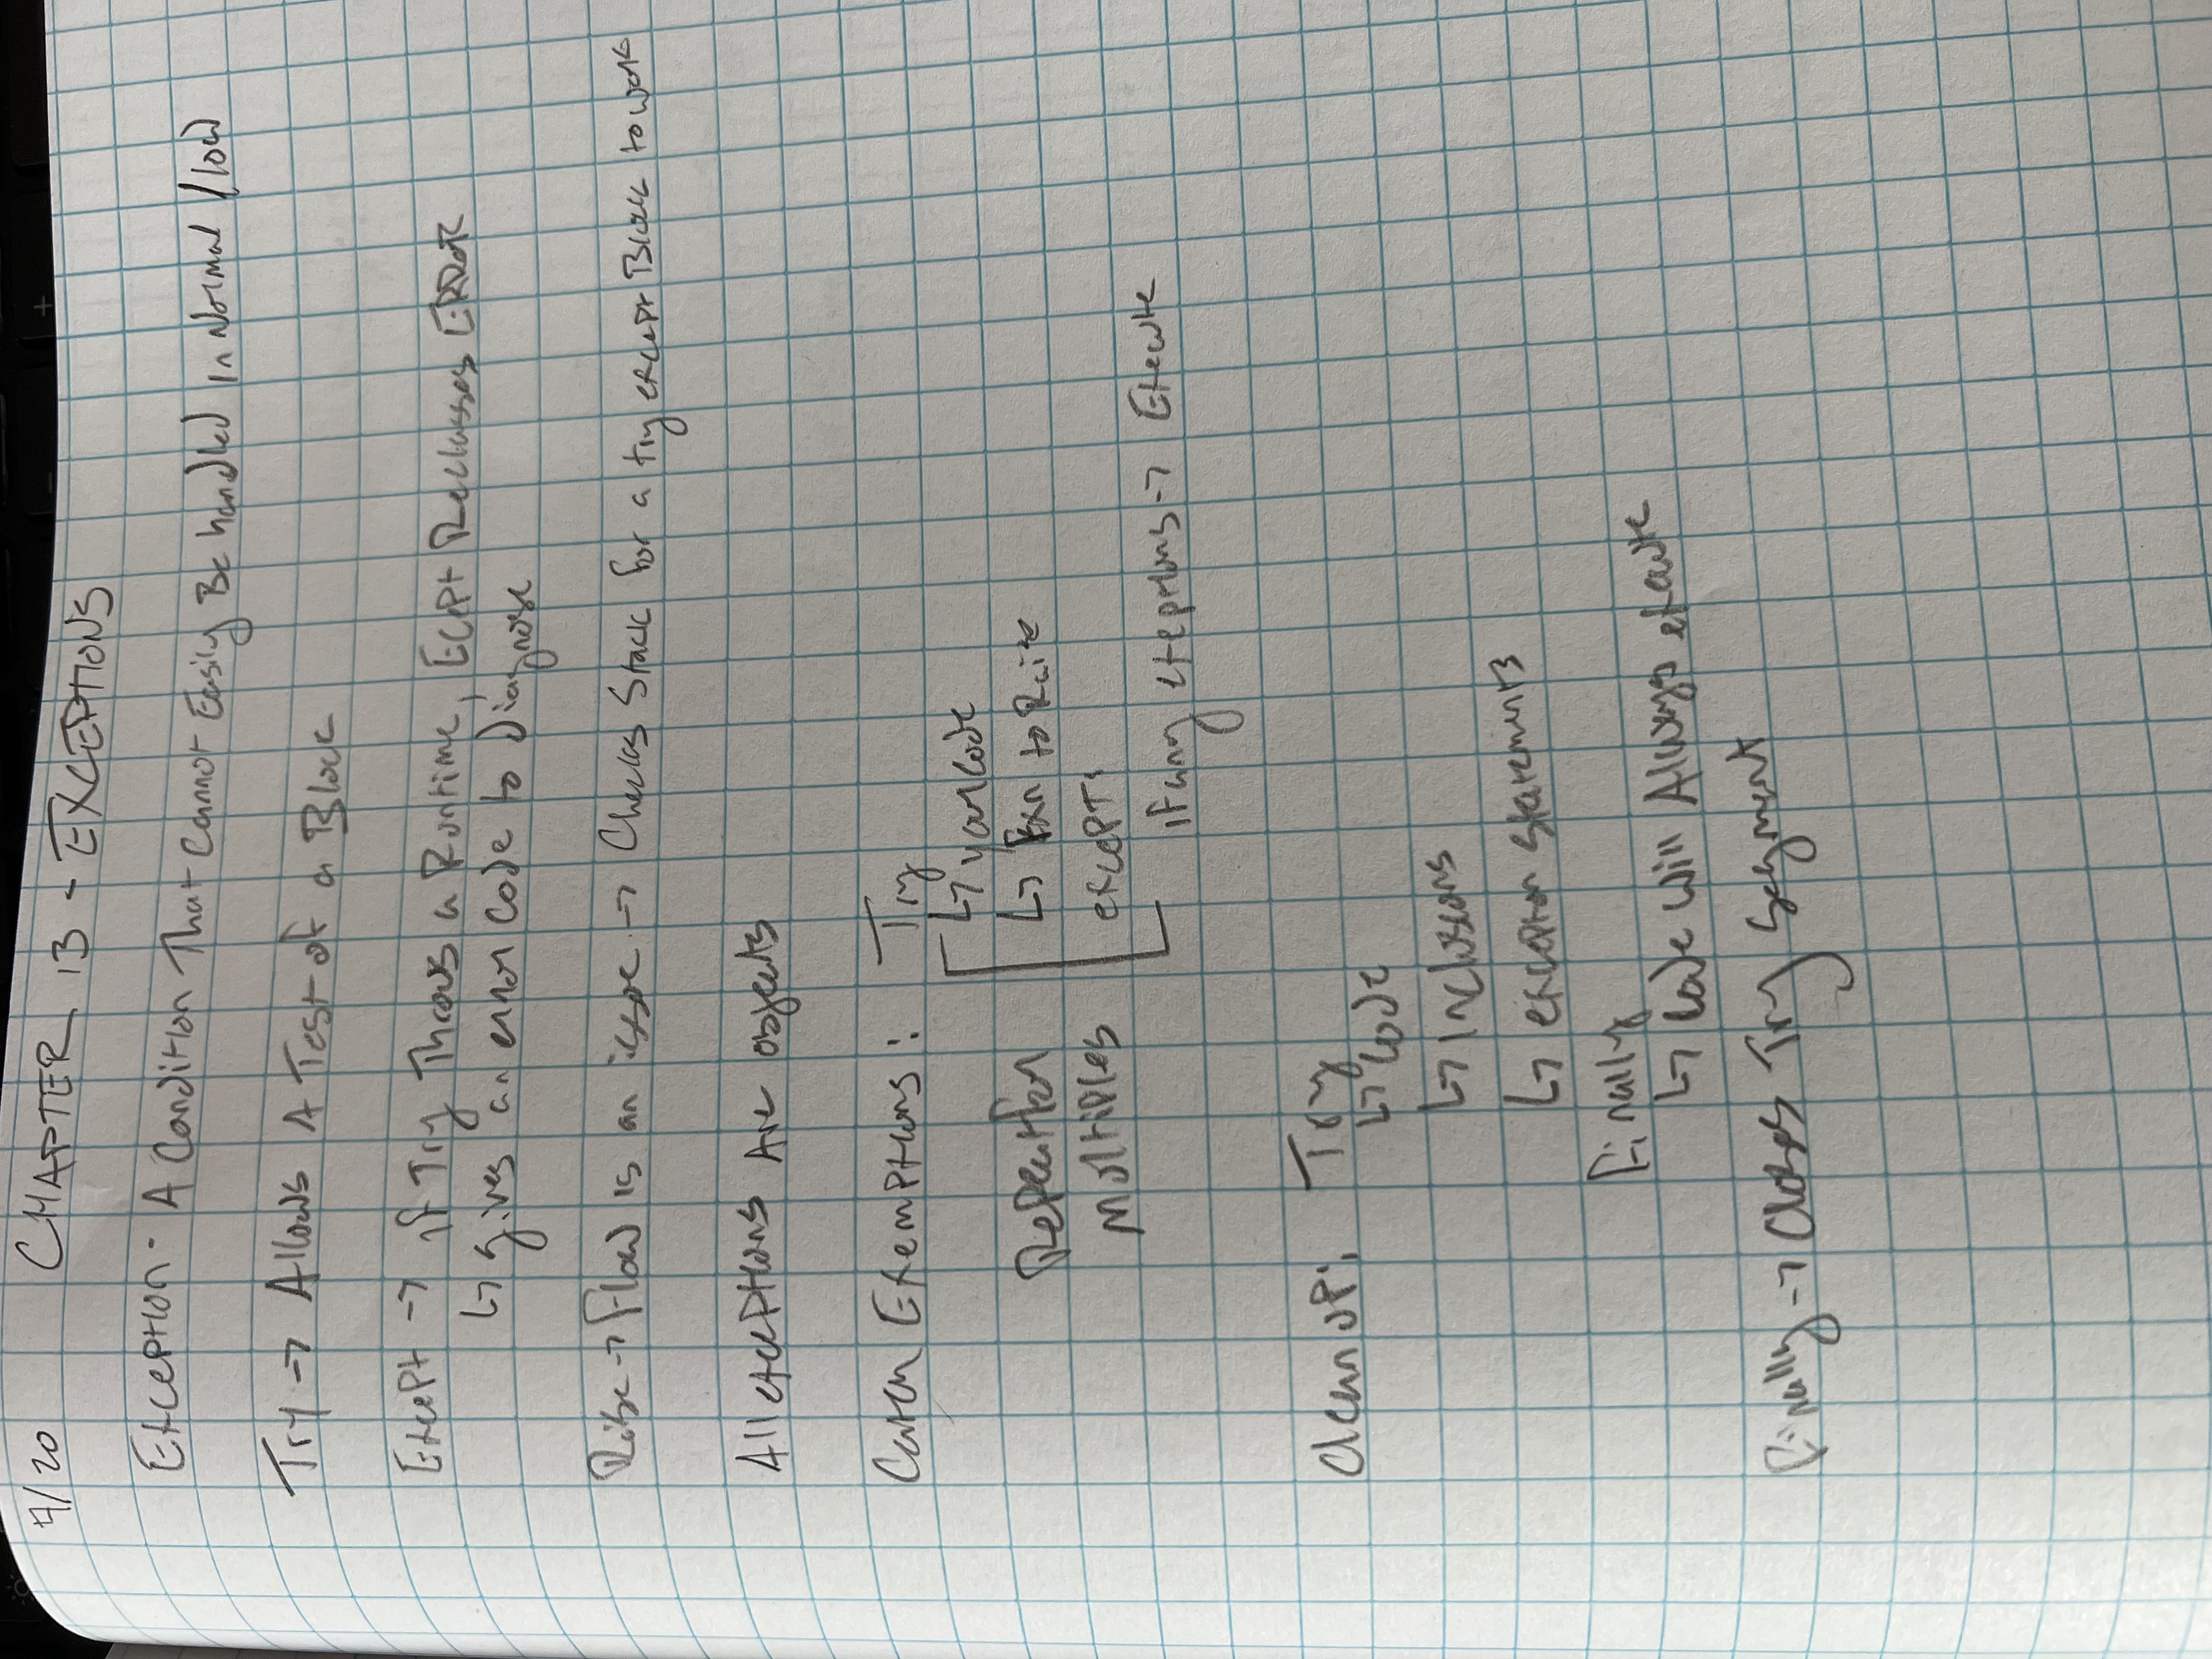 9/20 CHAPTER 13 - EXCEPTIONS
Exception - A Condition That Cannot Easily Be handled in Normal flow
Try → Allows A Test of a Block
Except → if Try Throws a Runtime, Ecept Reclasses ERROR
↳ gives an error code to Diagnose
→ Flow is an issue → Checks Stack for a try except Block to work
All exceptions Are objects
Catch Exemptions: Try
↳ your code
↳ Fxn to Raise
Repeat for
multiples
except:
if any exeptions → Execute
Clean up: Try
↳ Code
↳ Inclusions
↳ exception Statements
Finally
↳ Code Will Always execute
Finally → Closes Try Segment